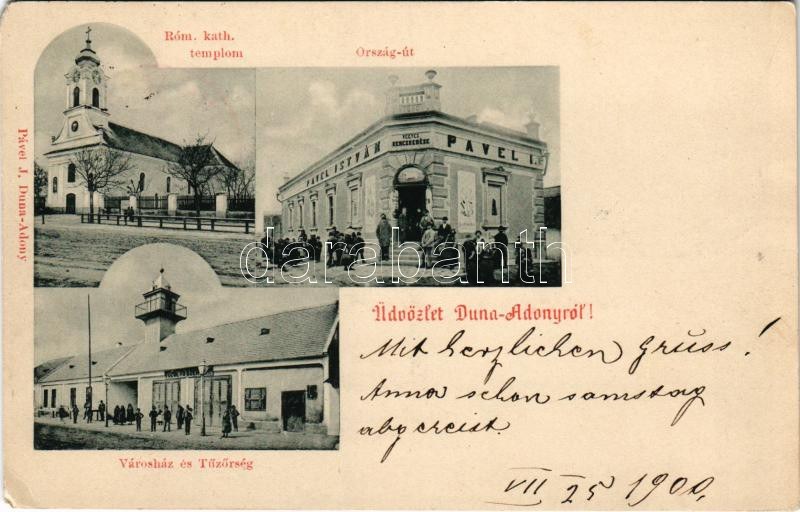 Róm. kath.
templom
Ország-út
Pável J. Duna-Adony
VEGYES
KERESKEDÉSE
PAVEL ISTVÁN
PAVEL I.
darabanth
Üdvözlet Duna-Adonyról!
Mit herzlichen Gruss!
Anna schon samstag
abgereist.
VII 25 1900.
Városház és Tűzőrség